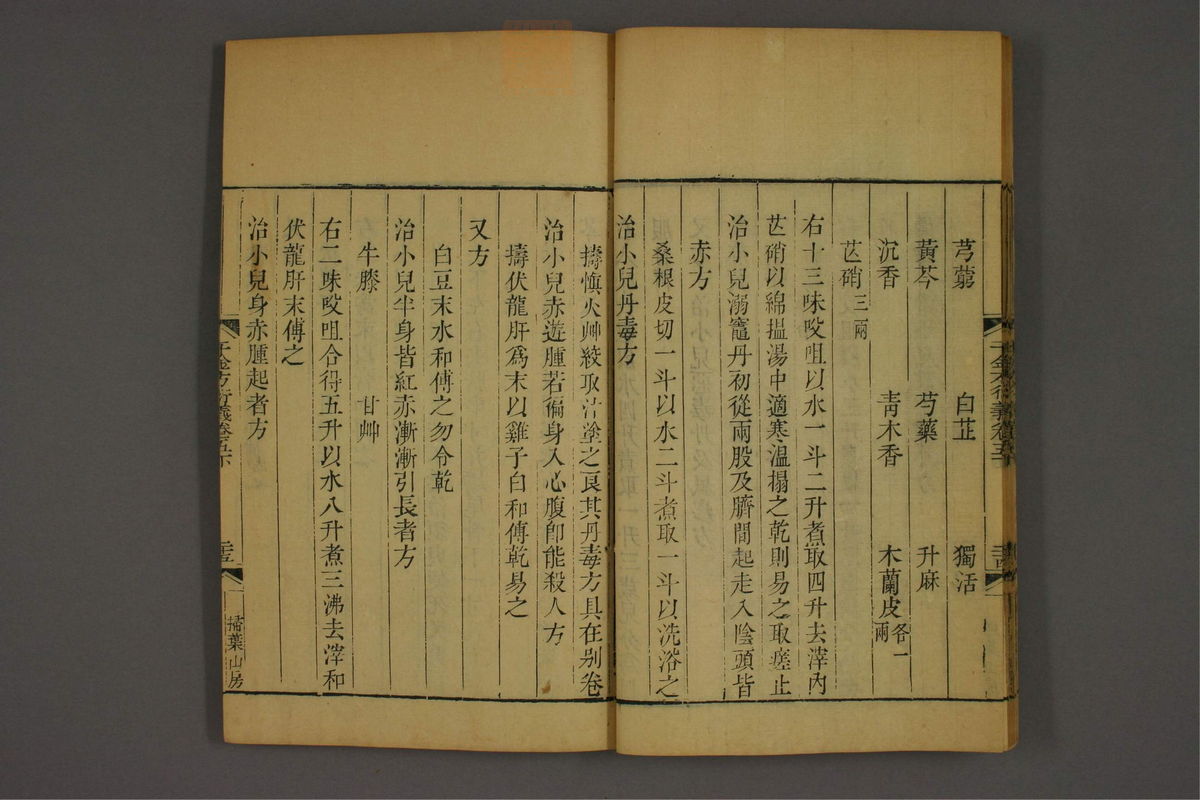 芎藭　白芷　獨活
黃芩　芍藥　升麻
沉香　青木香　木蘭皮各一兩
芒硝三兩
右十三味㕮咀以水一斗二升煮取四升去滓內
芒硝以綿搵湯中適寒溫搨之乾則易之取瘥止
治小兒溺竈丹初從兩股及臍間起走入陰頭皆
赤方
桑根皮切一斗以水二斗煮取一斗以洗浴之
治小兒丹毒方
擣愼火艸絞取汁塗之良其丹毒方具在別卷
治小兒赤遊腫若徧身入心腹卽能殺人方
擣伏龍肝爲末以雞子白和傅乾易之
又方
白豆末水和傅之勿令乾
治小兒半身皆紅赤漸漸引長者方
牛膝　甘艸
右二味㕮咀合得五升以水八升煮三沸去滓和
伏龍肝末傅之
治小兒身赤腫起者方
千金方衍義卷五下
三五
掃葉山房